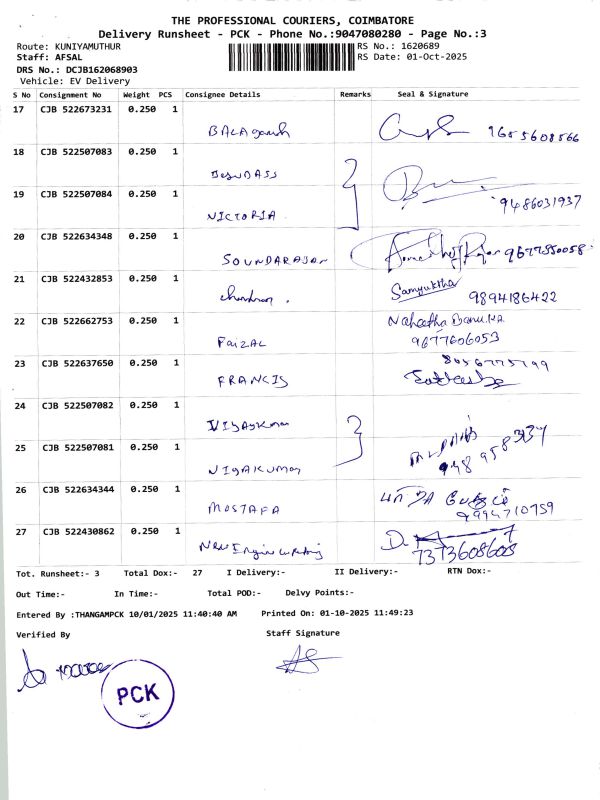 THE PROFESSIONAL COURIERS, COIMBATORE
Delivery Runsheet - PCK - Phone No.:9047080280 - Page No.:3
Route: KUNIYAMUTHUR
RS No.: 1620689
Staff: AFSAL
RS Date: 01-Oct-2025
DRS No.: DCJB162068903
Vehicle: EV Delivery
S No Consignment No Weight PCS Consignee Details Remarks Seal & Signature
17 CJB 522673231 0.250 1
BALAganesh 9655608566
18 CJB 522507083 0.250 1
19 CJB 522507084 0.250 1
VICTORIA 9486031937
20 CJB 522634348 0.250 1
SOUNDARAJAN 9677350058
21 CJB 522432853 0.250 1
Samyuktha
9894186422
22 CJB 522662753 0.250 1
FAIZAL 9677606053
23 CJB 522637650 0.250 1
FRANCIS
24 CJB 522507082 0.250 1
VIJAYKumar
25 CJB 522507081 0.250 1
26 CJB 522634344 0.250 1
MOSTAFA 9994710759
27 CJB 522430862 0.250 1
7373608608
Tot. Runsheet:- 3 Total Dox:- 27 I Delivery:- II Delivery:- RTN Dox:-
Out Time:- In Time:- Total POD:- Delvy Points:-
Entered By :THANGAMPCK 10/01/2025 11:40:40 AM Printed On: 01-10-2025 11:49:23
Verified By Staff Signature
PCK